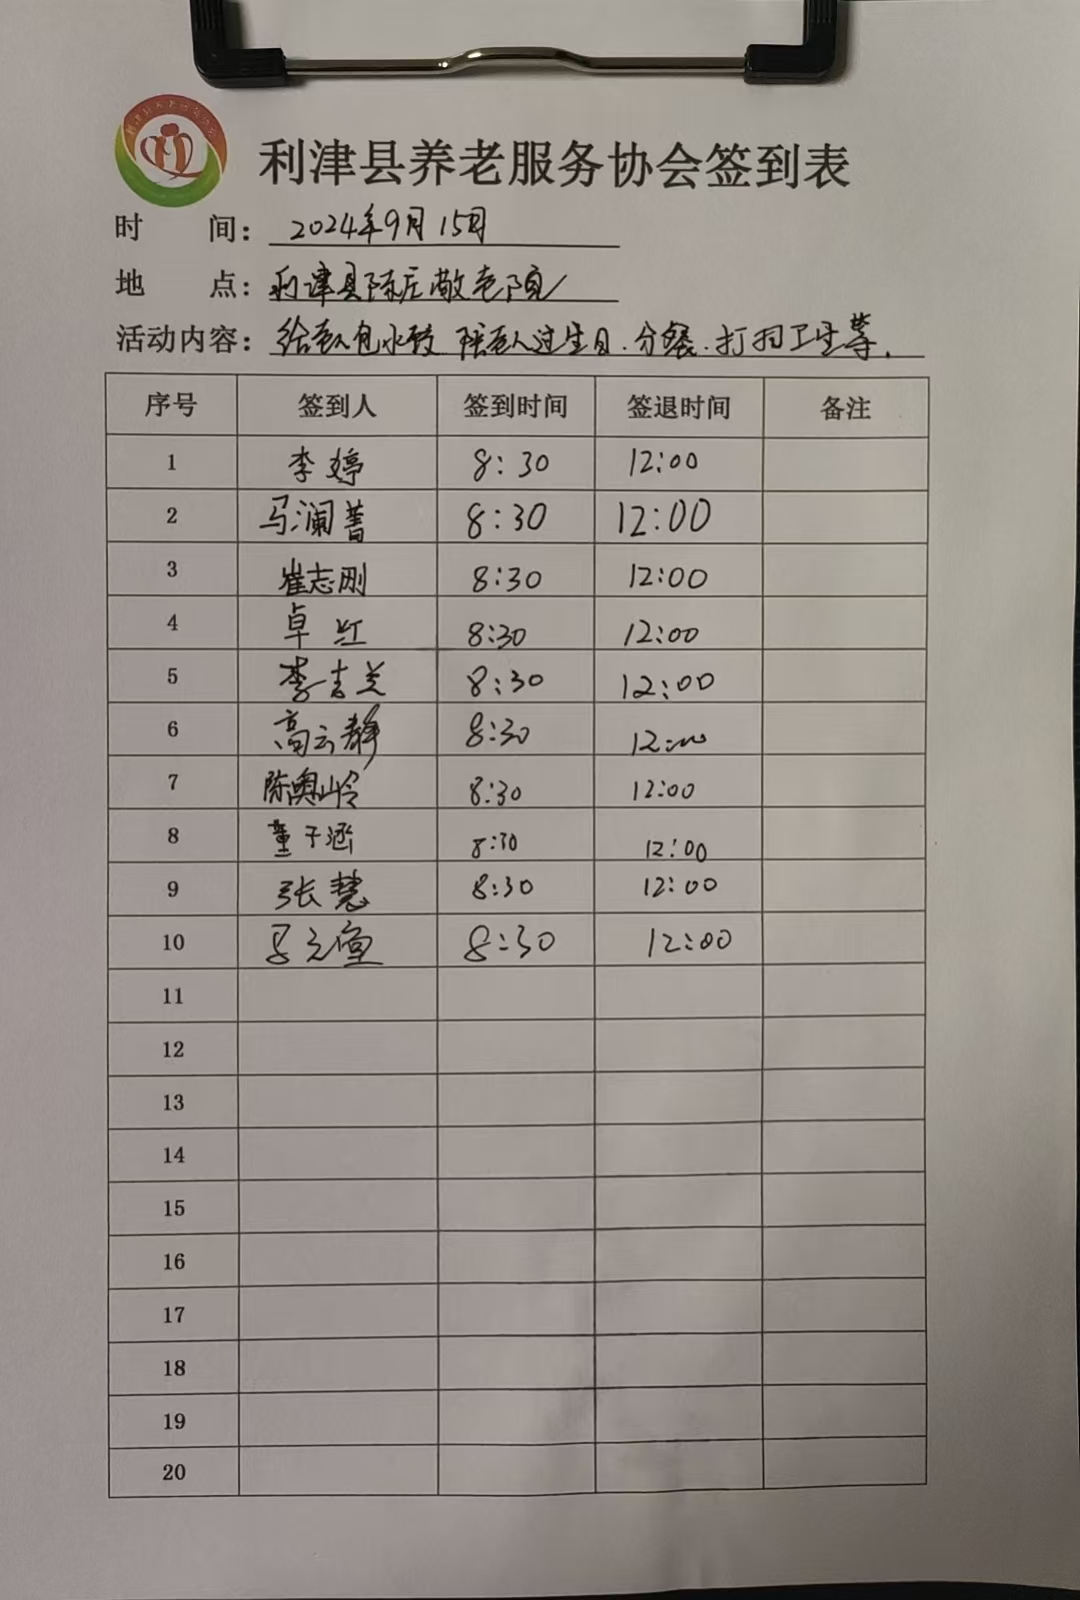 利津县养老服务协会签到表
时 间: 2024年9月15日
地 点: 利津县陈庄敬老院
活动内容: 给老人包水饺 陪老人过生日.分餐.打扫卫生等.
序号 签到人 签到时间 签退时间 备注
1 李婷 8:30 12:00
2 马澜菁 8:30 12:00
3 崔志刚 8:30 12:00
4 卓红 8:30 12:00
5 李吉兰 8:30 12:00
6 高云静 8:30 12:00
7 陈奥岭 8:30 12:00
8 董子涵 8:30 12:00
9 张慧 8:30 12:00
10 8:30 12:00
11
12
13
14
15
16
17
18
19
20